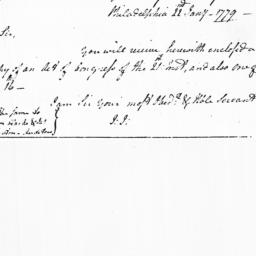 Philadelphia 22d Jany. 1779 —
Sir,
you will receive herewith enclosed a
py of an Act of Congress of the 21st Inst, and also one of
16 —
I am Sir your most Obedt. & Hble Servant
J. J.
The same to